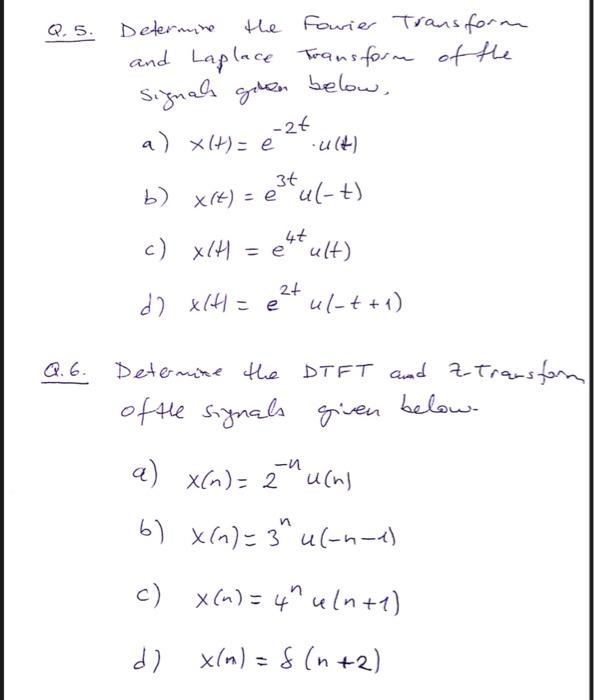 Q.5. Determine the Fourier Transform
and Laplace Transform of the
signals given below.
a) x(t) = e^{-2t} . u(t)
b) x(t) = e^{3t} u(-t)
c) x(t) = e^{4t} u(t)
d) x(t) = e^{2t} u(-t+1)
Q.6. Determine the DTFT and Z-Transform
of the signals given below.
a) x(n) = 2^{-n} u(n)
b) x(n) = 3^{n} u(-n-1)
c) x(n) = 4^{n} u(n+1)
d) x(n) = δ(n+2)